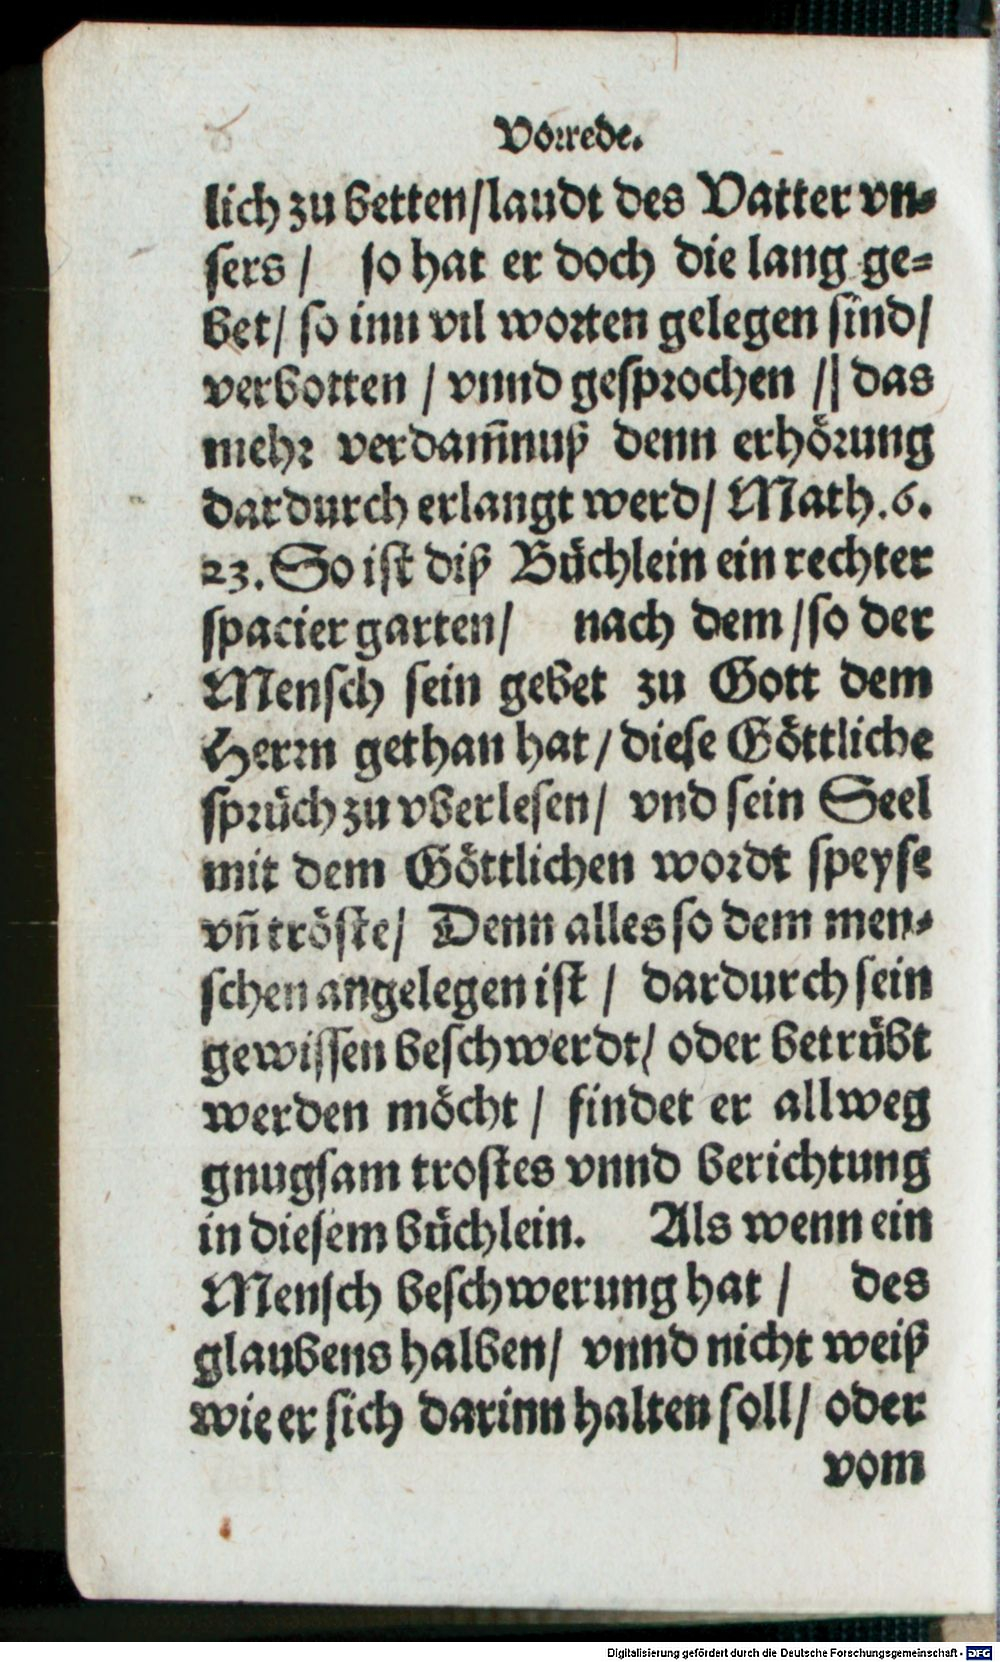 Vorrede.
lich zu betten/laudt des Vatter vn-
sers / so hat er doch die lang ge-
bet/ so inn vil worten gelegen sind/
verbotten / vnnd gesprochen /| das
mehr verdam̄nuß denn erhörung
dardurch erlangt werd/ Math.6.
23. So ist diß Büchlein ein rechter
spacier garten/ nach dem /so der
Mensch sein gebet zu Gott dem
Herrn gethan hat/ diese Göttliche
sprüch zu vberlesen/ vnd sein Seel
mit dem Göttlichen wordt speyse
vn̄ tröste/ Denn alles so dem men-
schen angelegen ist / dardurch sein
gewissen beschwerdt/ oder betrübt
werden möcht / findet er allweg
gnugsam trostes vnnd berichtung
in diesem büchlein. Als wenn ein
Mensch beschwerung hat / des
glaubens halben/ vnnd nicht weiß
wie er sich darinn halten soll/ oder
vom
Digitalisierung gefördert durch die Deutsche Forschungsgemeinschaft - DFG